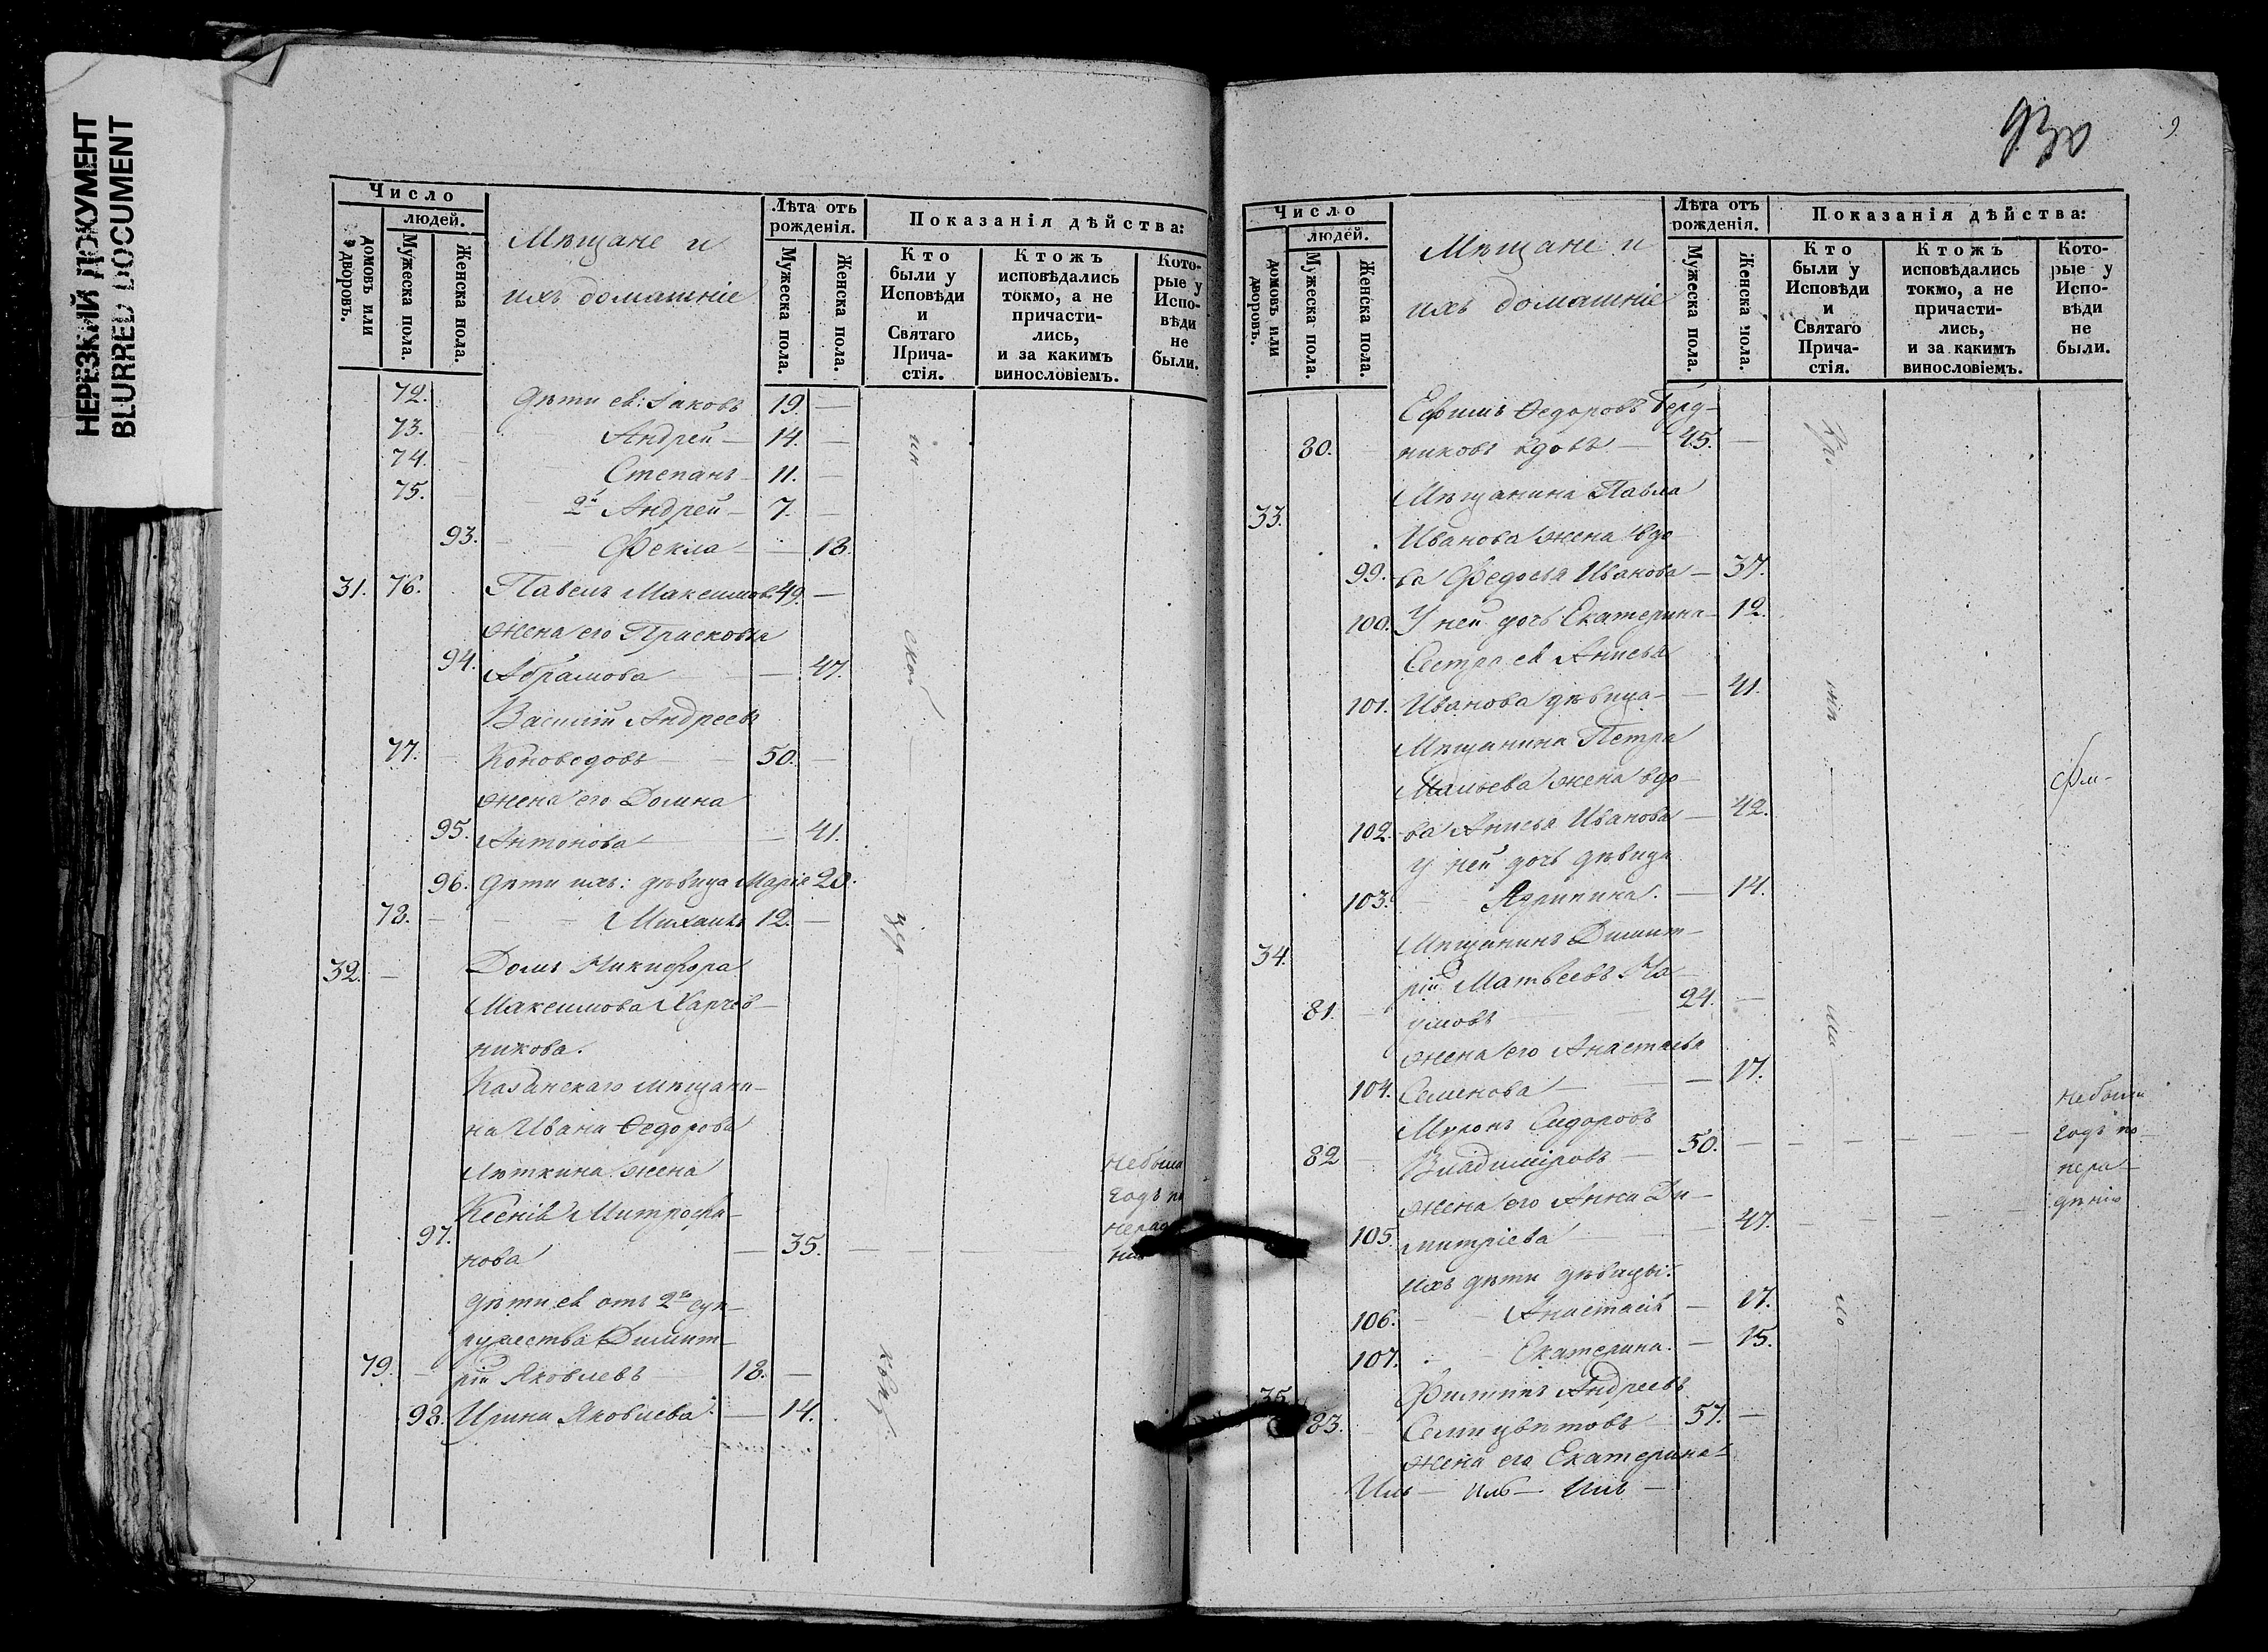 НЕРЕЗКИЙ ДОКУМЕНТ
BLURRED DOCUMENT
Число
людей.
домовъ или дворовъ.
Мужеска пола.
Женска пола.
Мѣщане и
ихъ домашніе
Лѣта отъ рожденія.
Мужеска пола.
Женска пола.
Показанія дѣйства:
Кто были у Исповѣди и Святаго Прича-стія.
Ктожъ исповѣдались токмо, а не причасти-лись, и за какимъ винословіемъ.
Кото-рые у Испо-вѣди не были.
72. Дѣти ея: Іаковъ 19. —
73. Андрей — 14. —
74. Степанъ 11. —
75. 2й Андрей — 7. —
93. Фекла — — 18.
31. 76. Павелъ Максимовъ 49. —
жена его Прасковья
94. Абрамова — 47.
Василій Андреевъ
77. Коноведовъ — 50. —
жена его Домна
95. Антонова — — 41.
96. Дѣти ихъ: дѣвица Марія 20.
78. — Михаилъ 12. —
32. — Домъ Никифора
Максимова Харчев-
никова.
Казанскаго мѣщани-
на Ивана Ѳедорова
жена
Ксенія Митрофа-
97. нова — 35. —
Не была
годъ по
нерад
нію
Дѣти ея отъ 2го суп-
ружества Димит-
79. — рій Яковлевъ 18. —
98. Ирина Яковлева — 14.
930
9
Число
людей.
домовъ или дворовъ.
Мужеска пола.
Женска пола.
Мѣщане и
ихъ домашніе
Лѣта отъ рожденія.
Мужеска пола.
Женска пола.
Показанія дѣйства:
Кто были у Исповѣди и Святаго Прича-стія.
Ктожъ исповѣдались токмо, а не причасти-лись, и за какимъ винословіемъ.
Кото-рые у Испо-вѣди не были.
Ефимъ Ѳедоровъ Берд-
80. никовъ вдовъ — 45. —
33. Мѣщанина Павла
Иванова жена вдо-
99. ва Федосья Иванова — 37.
100. У ней дочь Екатерина — 12.
Сестра ея Анисья
101. Иванова дѣвица — — 41.
Мѣщанина Петра
жена вдо-
102. ва Анисья Иванова — 42.
у ней дочь дѣвица
103. — Агрипина. — 14.
34. Мѣщанинъ Димит-
рій Матвеевъ На-
81. умовъ 24. —
жена его Анастасья
104. Семенова — — 17.
Миронъ Сидоровъ
82 — Владиміровъ — 50. —
жена его Анна Ди-
105. митріева — 47.
Не были
годъ по
нера-
дѣнію
Ихъ дѣти дѣвицы:
106. — Анастасія — 17.
107. — Екатерина. — 15.
35. Филиппъ Андреевъ
83. Семицвѣтовъ 57. —
жена его Екатерина